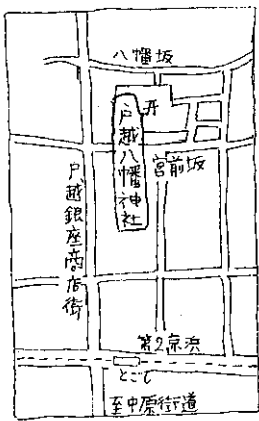 八幡坂
戸越八幡神社
宮前坂
戸越銀座商店街
第2京浜
とごし
至中原街道